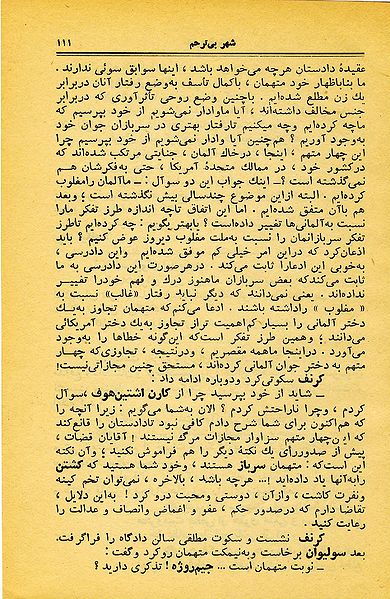 شهر بی‌ترحم ۱۱۱
عقیدهٔ دادستان هرچه می‌خواهد باشد ، اینها سوابق سوئی ندارند .
ما بنابا‌ظهار خود متهمان ، باکمال تأسف به‌وضع رفتار آنان دربرابر
یك زن مطلع شده‌ایم . باچنین وضع روحی تأثرآوری که دربرابر
جنس مخالف داشته‌اند ، آیا وادار نمی‌شویم از خود بپرسیم که
ماچه کرده‌ایم وچه میکنیم تارفتار بهتری در سربازان جوان خود
به‌وجود آوریم ؟ هم‌چنین آیا وادار نمی‌شویم از خود بپرسیم چرا
این چهار متهم ، اینجا ، درخاك آلمان ، جنایتی مرتکب شده‌اند که
درکشور خود ، در ممالك متحدهٔ آمریکا ، حتی به‌فکرشان هم
نمی‌گذشته است ؟ـ اینك جواب این دو سوآل : ـ ماآلمان رامغلوب
کرده‌ایم . البته ازاین موضوع چندسالی بیش نگذشته است ؛ وبعد
هم باآن متفق شده‌ایم . اما این اتفاق تاچه اندازه طرز تفکر مارا
نسبت به‌آلمانی‌ها تغییر داده‌است ؟ یابهتربگویم : چه کرده‌ایم تاطرز
تفکر سربازانمان را نسبت به‌ملت مغلوب دیروز عوض کنیم ؟ باید
اذعان‌کرد که دراین امر خیلی کم موفق شده‌ایم  واین دادرسی ،
به‌خوبی این ادعارا ثابت می‌کند . درهرصورت این دادرسی به ما
ثابت می‌کندکه بعض سربازان ماهنوز درك و فهم خودرا تغییر
نداده‌اند . یعنی نمی‌دانند که دیگر نباید رفتار «غالب» نسبت به
« مغلوب » راداشته باشند . ادعا می‌کنم‌که متهمان تجاوز به‌یك
دختر آلمانی را بسیار کم‌اهمیت تراز تجاوز به‌یك دختر آمریکائی
می‌دانند ؛ وهمین طرز تفکر است‌که این‌گونه خطاها را به‌وجود
می‌آورد . دراینجا ماهمه مقصریم ، ودرنتیجه ، تجاوزی‌که چهار
متهم به دختر جوان آلمانی کرده‌اند، مستحق چنین مجازاتی‌نیست!
کرنف سکوتی‌کرد ودوباره ادامه داد :
ـ شاید از خود بپرسید چرا از کارن اشتین‌هوف ،سوآل
کردم ، وچرا ناراحتش کردم ؟ الان به‌شما می‌گویم : زیرا آنچه را
که هم‌اکنون برای شما شرح دادم کافی نبود تادادستان را قانع‌کند
که این‌چهار متهم سزاوار مجازات مرگ نیستند ! آقایان قضات ،
پیش از صدوررای یك نکتهٔ دیگر را هم فراموش نکنید ؛ وآن نکته
این است‌که : متهمان سرباز هستند ، وخود شما هستید که کشتن
رابه‌آنها یاد داده‌اید !... هرچه باشد ، بالاخره ، نمی‌توان تخم کینه
ونفرت کاشت ، وازآن ، دوستی ومحبت درو کرد ! به‌این دلایل ،
تقاضا دارم که درصدور حکم ، عفو و اغماض وانصاف و عدالت را
رعایت کنید .
کرنف نشست و سکوت مطلقی سالن دادگاه را فراگرفت.
بعد سولیوان برخاست وبه‌نیمکت متهمان روکرد وگفت :
ـ نوبت متهمان است ... جیم‌روژه ! تذکری دارید ؟